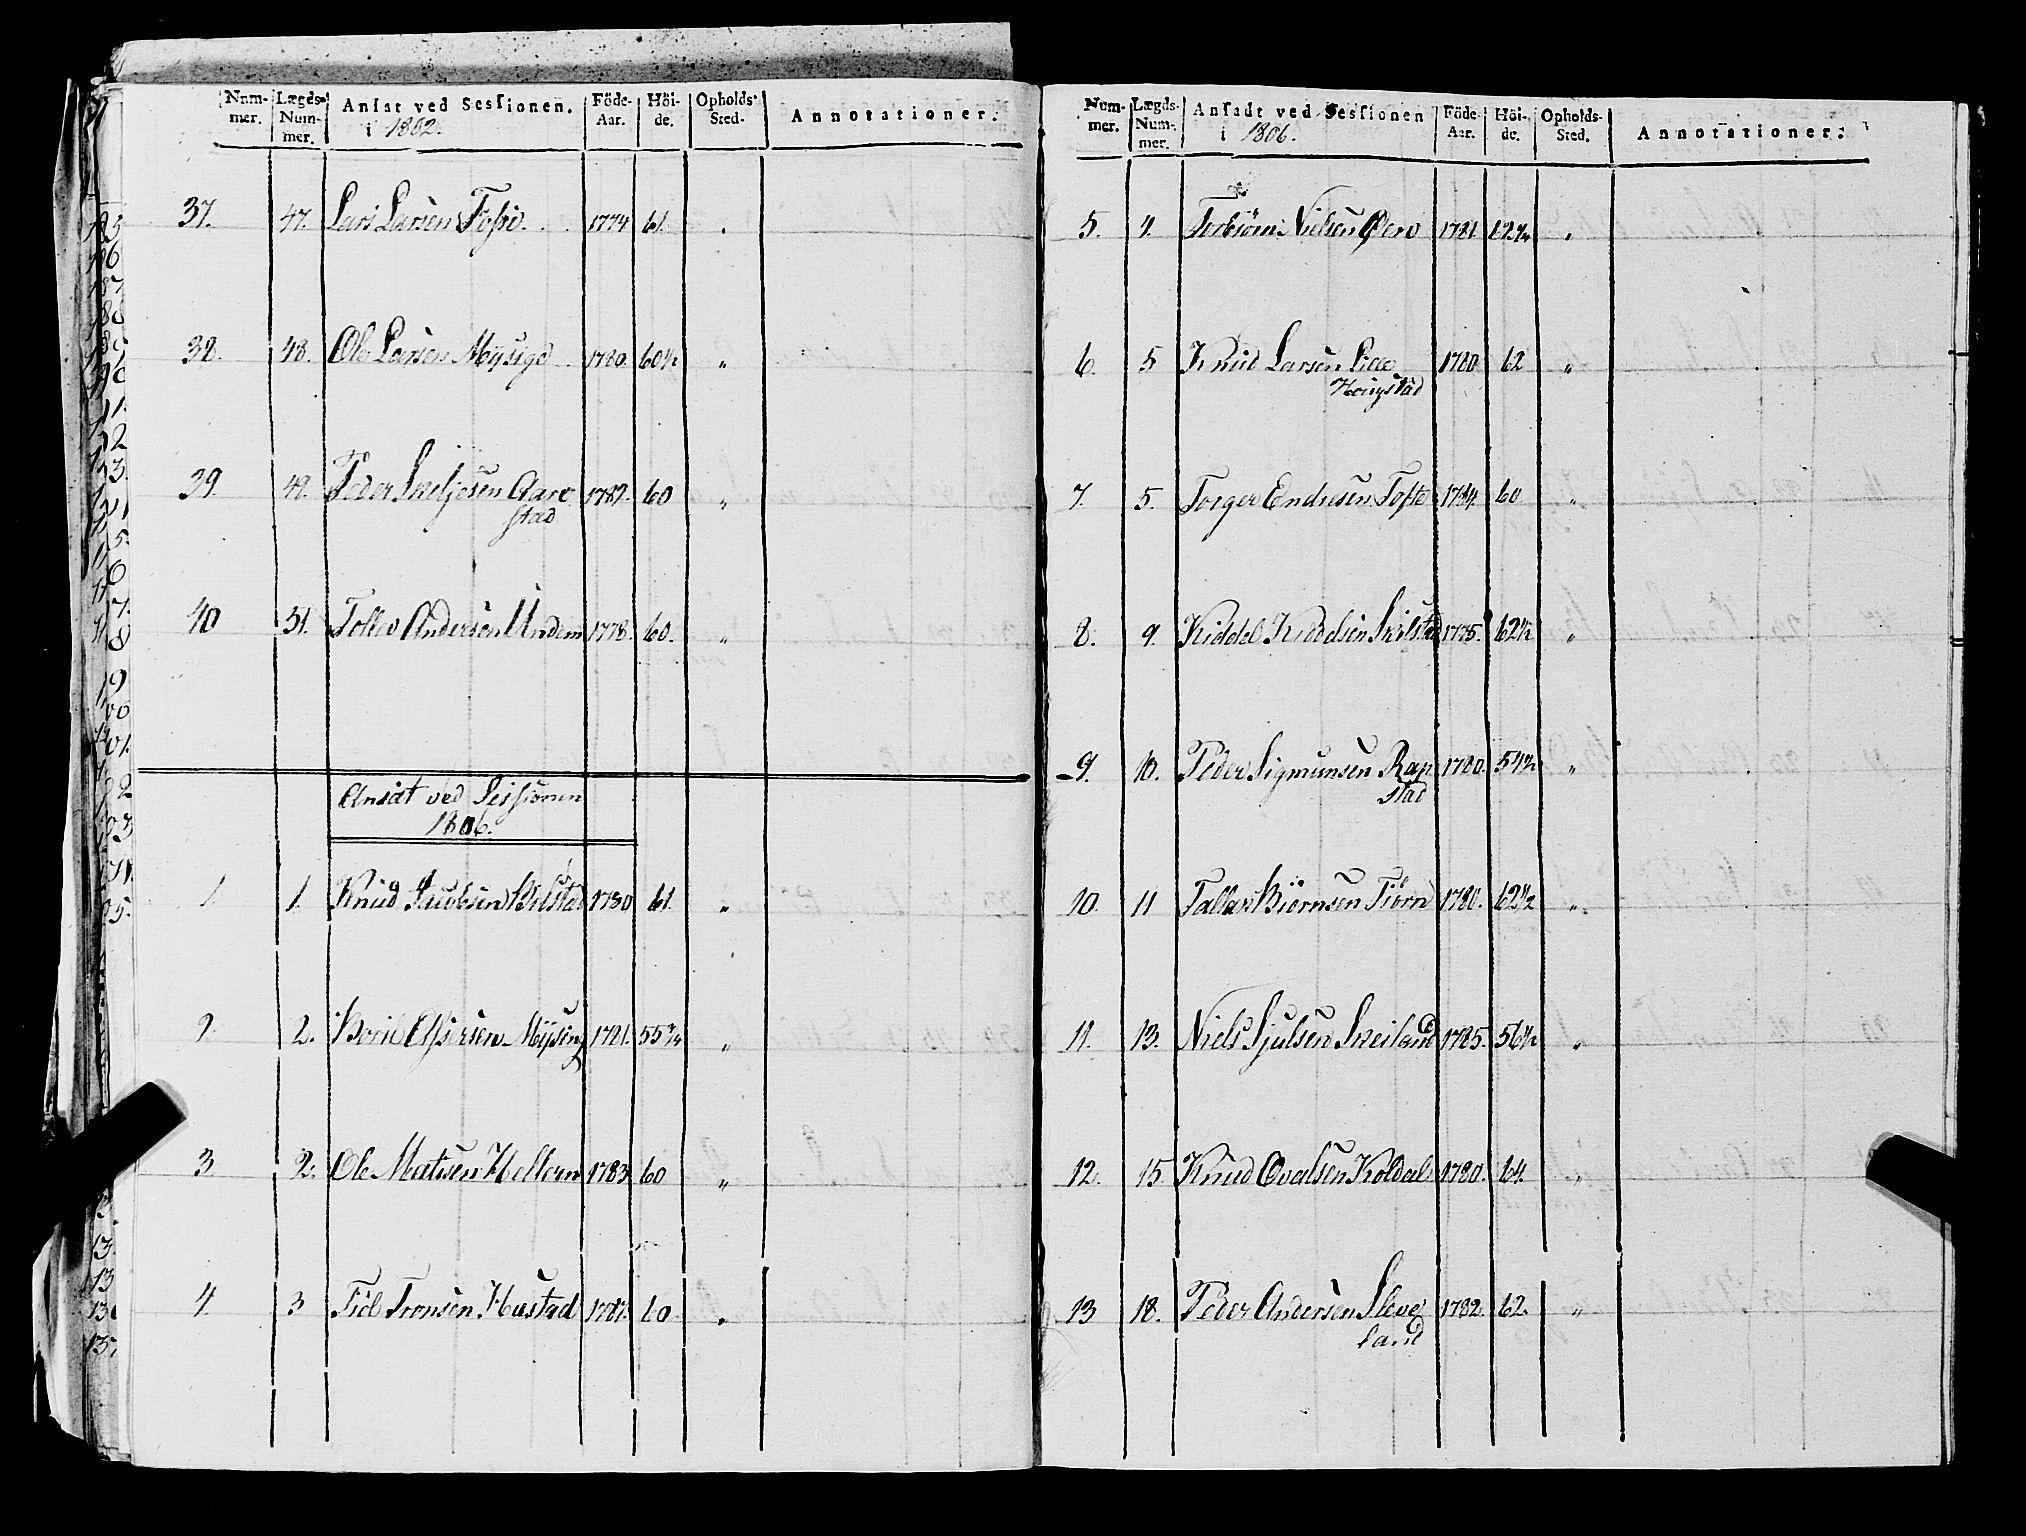 Num-mer. Lægds-Num-mer. Ansat ved Sessionen. i 1802. Föde-Aar. Höi-de. Opholds-Sted. Annotationer.
37. 47. Lars Larsen Fosse. 1774 61. "
38. 48. Ole Larsen Mysige 1780. 60½ "
39. 49. Peder Sneljesen Aare
stad 1782. 60 "
40 51. Tollev Andersen Undem 1778. 60. "
Ansat ved Sessionen
1806.
1 1. Knud Jacobsen Bilstad 1780 61. "
2. 2. Boril Assersen Mysing 1781. 55¾ "
3 2. Ole Matsen Hellern 1783 60 "
4. 3 Tronsen Hustad 1787. 60 "
Num-mer. Lægds-Num-mer. Ansadt ved Sessionen i 1806. Föde-Aar. Höi-de. Opholds-Sted. Annotationer.
5. 4. Torbjörn Nielsen 1781 62¼ "
6. 5 Knud Larsen Lille
Hougstad 1780 62 "
7. 5. Torger Endresen Tofte 1784. 60 "
8. 9. Kiddel Kiddelsen 1775. 62½ "
9. 10. Peder Sigmunsen Rap
stad 1780. 54½ "
10. 11 Tallak Biörnsen Tiörn 1780. 62½ "
11. 13. Niels Sjulsen Sneiland 1785. 56½ "
12. 15 Knud Ovalsen Koldal 1780. 64. "
13 18. Peder Andersen Sleve
land 1782. 62. "